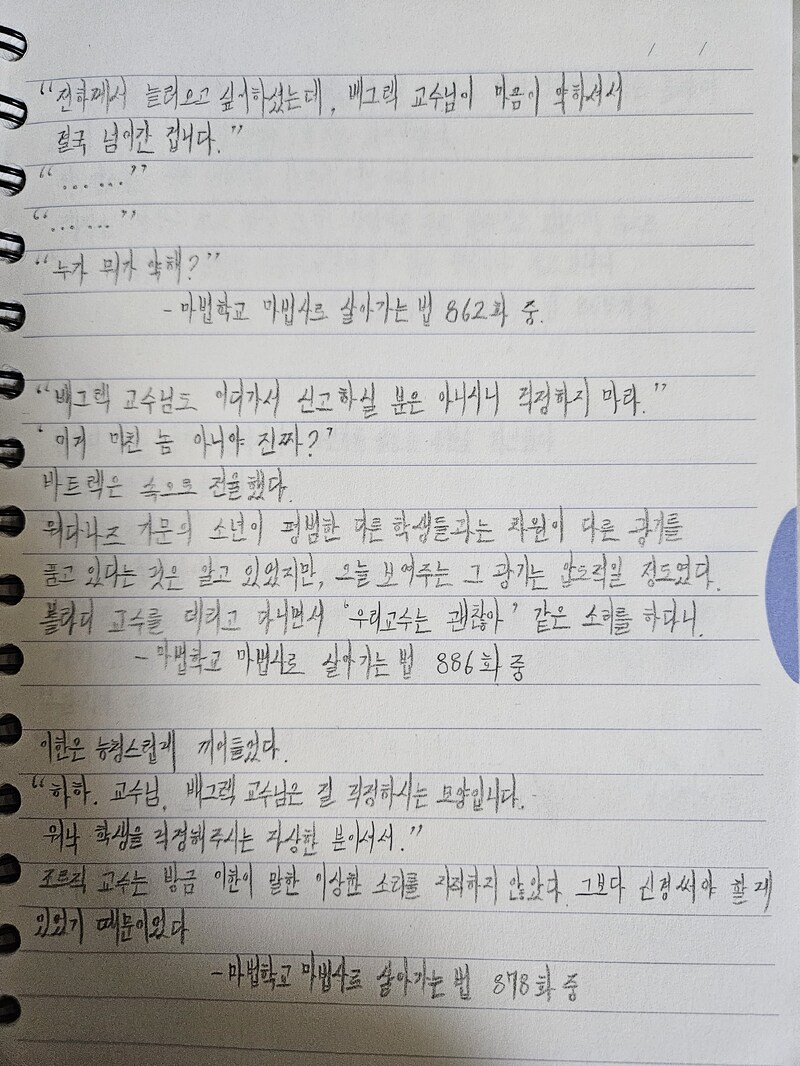 / /
“전하께서 놀러오고 싶어하셨는데, 배그렉 교수님이 마음이 약하셔서
결국 넘어간 겁니다.”
“……”
“……”
“누가 뭐가 약해?”
- 마법학교 마법사로 살아가는 법 862화 중.
“배그렉 교수님도 어디가서 신고하실 분은 아니시니 걱정하지 마라.”
‘이거 미친 놈 아니야 진짜?’
바트렉은 속으로 전율했다.
워다나즈 가문의 소년이 평범한 다른 학생들과는 차원이 다른 광기를
품고 있다는 것은 알고 있었지만, 오늘 보여주는 그 광기는 압도적일 정도였다.
볼라디 교수를 데리고 다니면서 ‘우리교수는 괜찮아’ 같은 소리를 하다니.
- 마법학교 마법사로 살아가는 법 886화 중
이한은 능청스럽게 끼어들었다.
“하하. 교수님. 배그렉 교수님은 절 걱정하시는 모양입니다.
워낙 학생을 걱정해주시는 자상한 분이셔서.”
교수는 방금 이한이 말한 이상한 소리를 지적하지 않았다. 그보다 신경써야 할 게
있었기 때문이었다
- 마법학교 마법사로 살아가는 법 878화 중